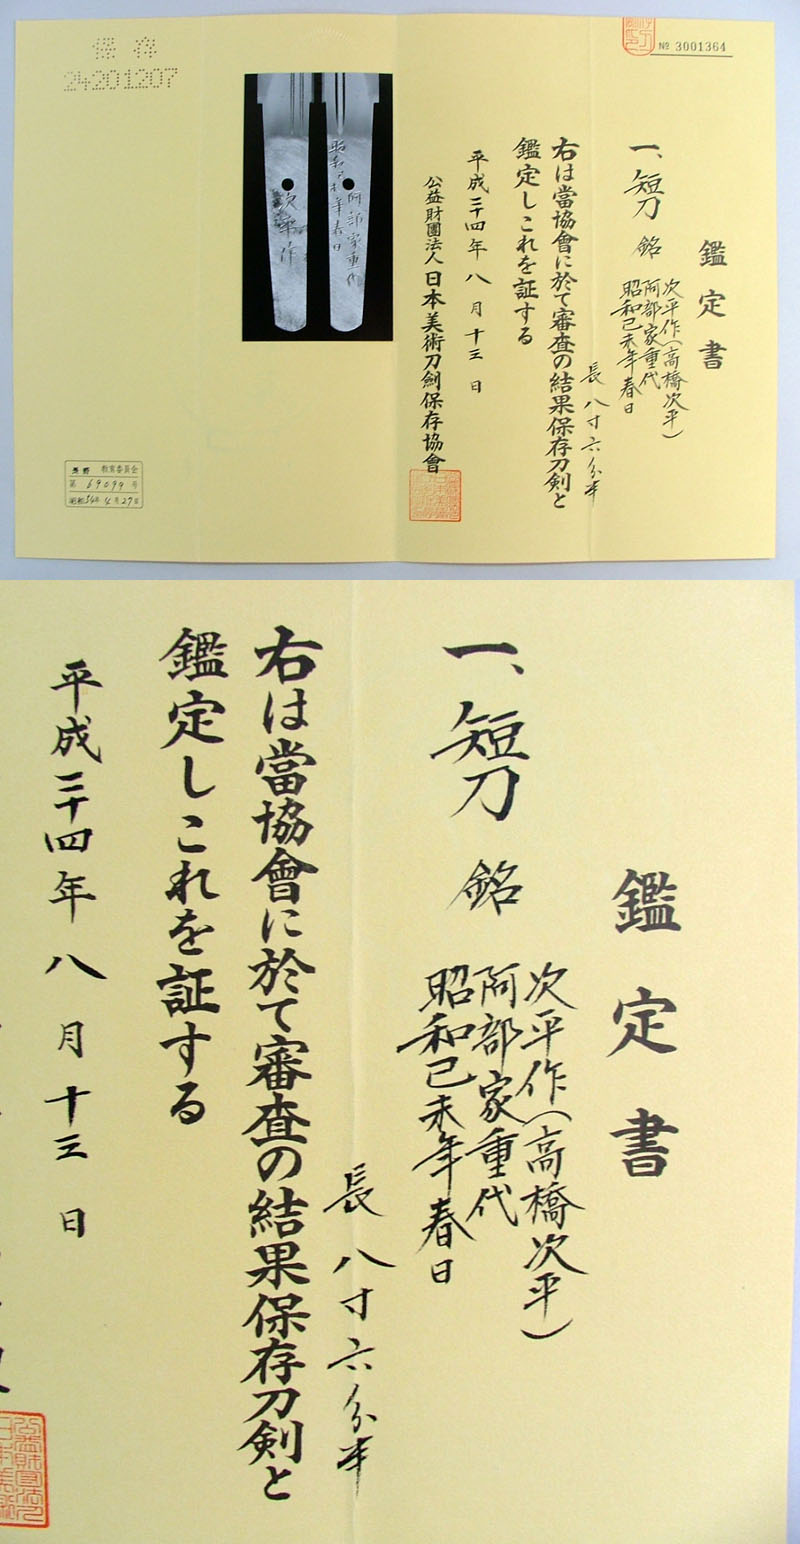 保存
24201207
№ 3001364
鑑定書
一、短刀 銘 次平作(高橋次平)
阿部家重代
昭和己未年春日
長 八寸六分半
右は當協會に於て審査の結果保存刀剣と
鑑定しこれを証する
平成二十四年 八 月 十三 日
公益財團法人 日本美術刀劍保存協會
阿部家重代
昭和己未年春日
次平作
長野 教育委員会
第 69099 号
昭和54年4月27日
鑑定書
一、短刀 銘 次平作(高橋次平)
阿部家重代
昭和己未年春日
長 八寸六分半
右は當協會に於て審査の結果保存刀剣と
鑑定しこれを証する
平成二十四年 八 月 十三 日